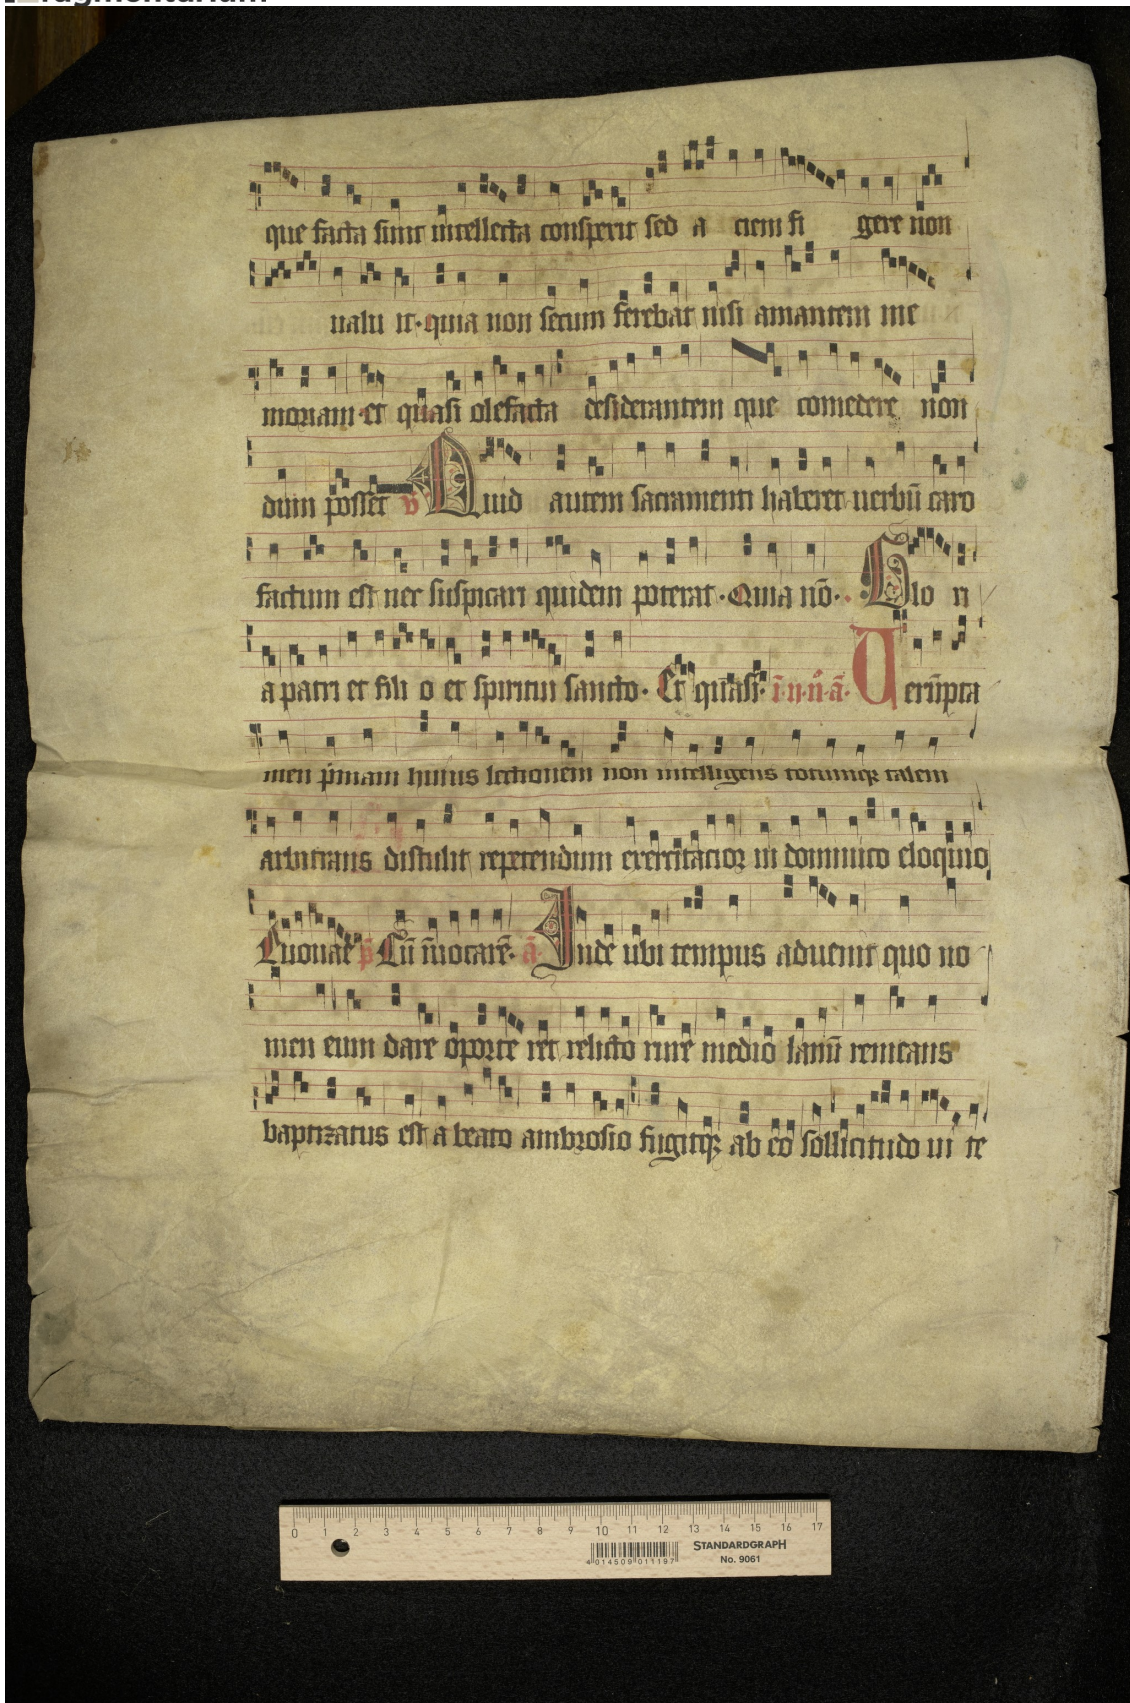 que facta sunt intellecta conspexit sed a ciem fi gere non
ualu it · quia non secum ferebat nisi amantem me
moriam et quasi olefacta desiderantem que comedere non
dum posset v̄ Quid autem sacramenti haberet uerbū caro
factum est nec suspicari quidem poterat · Quia nō · Glo ri
a patri et fili o et spiritui sancto · Et quasi · ī · n · n̄ · ā · Uerūpta
men p̄mam huius lectionem non intelligens totumqꝫ talem
arbitrans distulit repetendum exercitacioꝛ in dominico eloquio
Euouae p̄ Cū īuocarē · ā Inde ubi tempus aduenit quo no
men eum dare oporte ret relicto rure mediolanū remeans
baptizatus est a beato ambrosio fugitqꝫ ab eo sollicitudo ui te
0 1 2 3 4 5 6 7 8 9 10 11 12 13 14 15 16 17
STANDARDGRAPH
No. 9061
4 014509 011197